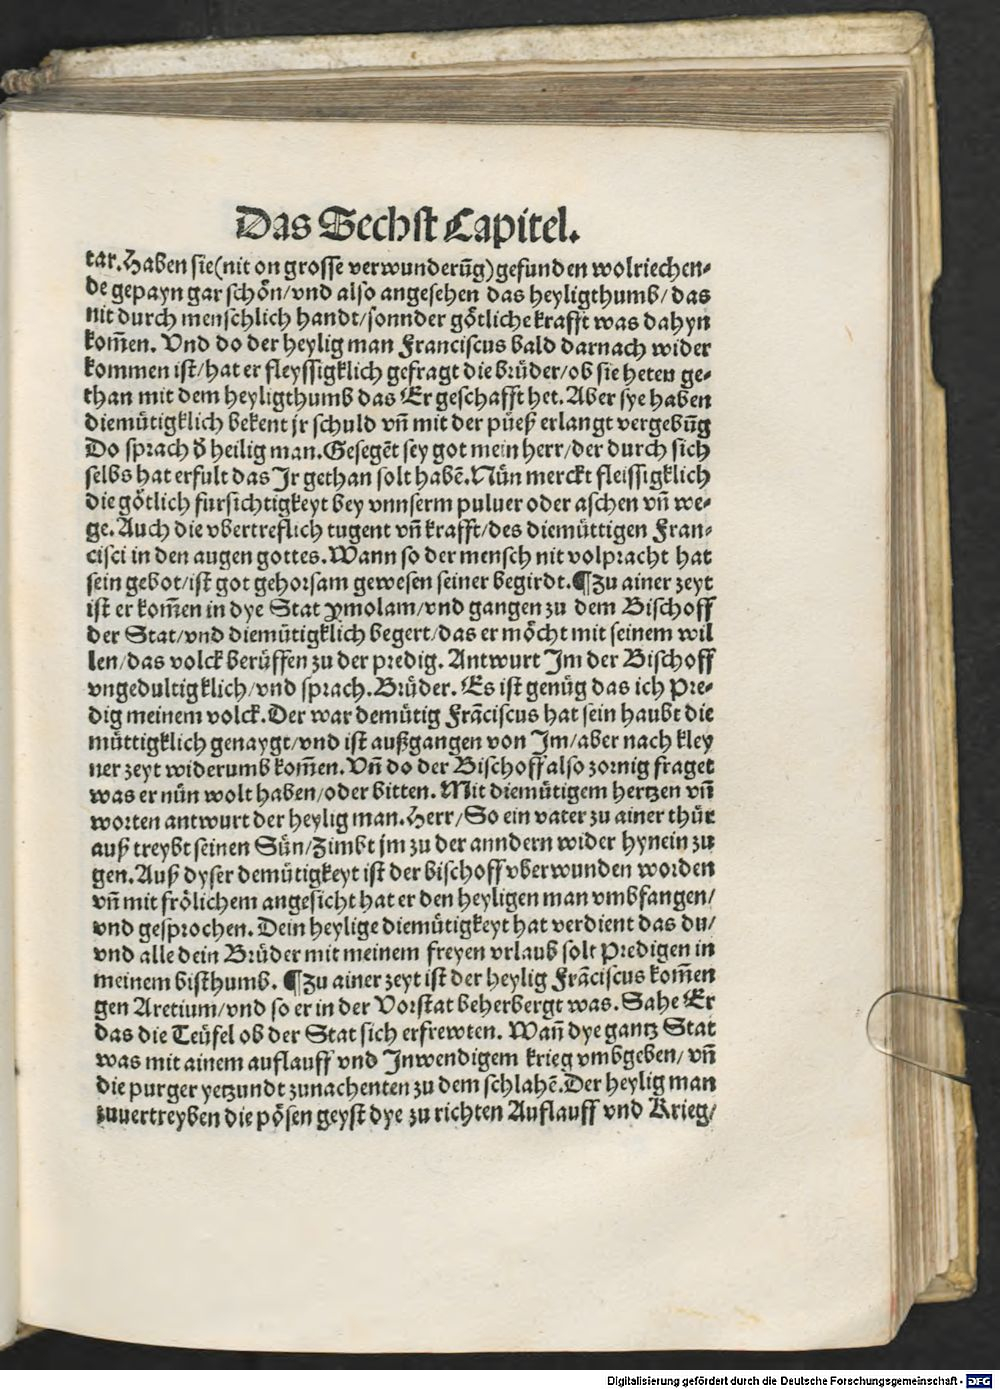 Das Sechst Capitel.
tar. Haben sie (nit on grosse verwunderūg) gefunden wolriechen⸗
de gepayn gar schön/ vnd also angesehen das heyligthumb/ das
nit durch menschlich handt/ sonnder götliche krafft was dahyn
kom̄en. Vnd do der heylig man Franciscus bald darnach wider
kommen ist/ hat er fleyssigklich gefragt die brüder/ ob sie heten ge⸗
than mit dem heyligthumb das Er geschafft het. Aber sye haben
diemütigklich bekent jr schuld vn̄ mit der püeß erlangt vergebūg
Do sprach d̄ heilig man. Gesegēt sey got mein herr/ der durch sich
selbs hat erfult das Jr gethan solt habē. Nün merckt fleissigklich
die götlich fursichtigkeyt bey vnnserm puluer oder aschen vn̄ we⸗
ge. Auch die vbertreflich tugent vn̄ krafft/ des diemüttigen Fran⸗
cisci in den augen gottes. Wann so der mensch nit volpracht hat
sein gebot/ ist got gehorsam gewesen seiner begirdt. ¶ Zu ainer zeyt
ist er kom̄en in dye Stat Ymolam/ vnd gangen zu dem Bischoff
der Stat/ vnd diemütigklich begert/ das er möcht mit seinem wil
len/ das volck berüffen zu der predig. Antwurt Jm der Bischoff
vngedultigklich/ vnd sprach. Brüder. Es ist genüg das ich Pre⸗
dig meinem volck. Der war demütig Frāciscus hat sein haubt die
müttigklich genaygt/ vnd ist außgangen von Jm/ aber nach kley
ner zeyt widerumb kom̄en. Vn̄ do der Bischoff also zornig fraget
was er nün wolt haben/ oder bitten. Mit diemütigem hertzen vn̄
worten antwurt der heylig man. Herr/ So ein vater zu ainer thür
auß treybt seinen Sün/ Zimbt jm zu der anndern wider hynein zu
gen. Auß dyser demütigkeyt ist der bischoff vberwunden worden
vn̄ mit frölichem angesicht hat er den heyligen man vmbfangen/
vnd gesprochen. Dein heylige diemütigkeyt hat verdient das du/
vnd alle dein Brüder mit meinem freyen vrlaub solt Predigen in
meinem bisthumb. ¶ Zu ainer zeyt ist der heylig Frāciscus kom̄en
gen Aretium/ vnd so er in der Vorstat beherbergt was. Sahe Er
das die Teüfel ob der Stat sich erfrewten. Wan̄ dye gantz Stat
was mit ainem auflauff vnd Jnwendigem krieg vmbgeben/ vn̄
die purger yetzundt zunachenten zu dem schlahē. Der heylig man
zuuertreyben die pösen geyst dye zu richten Auflauff vnd Krieg/
Digitalisierung gefördert durch die Deutsche Forschungsgemeinschaft - DFG